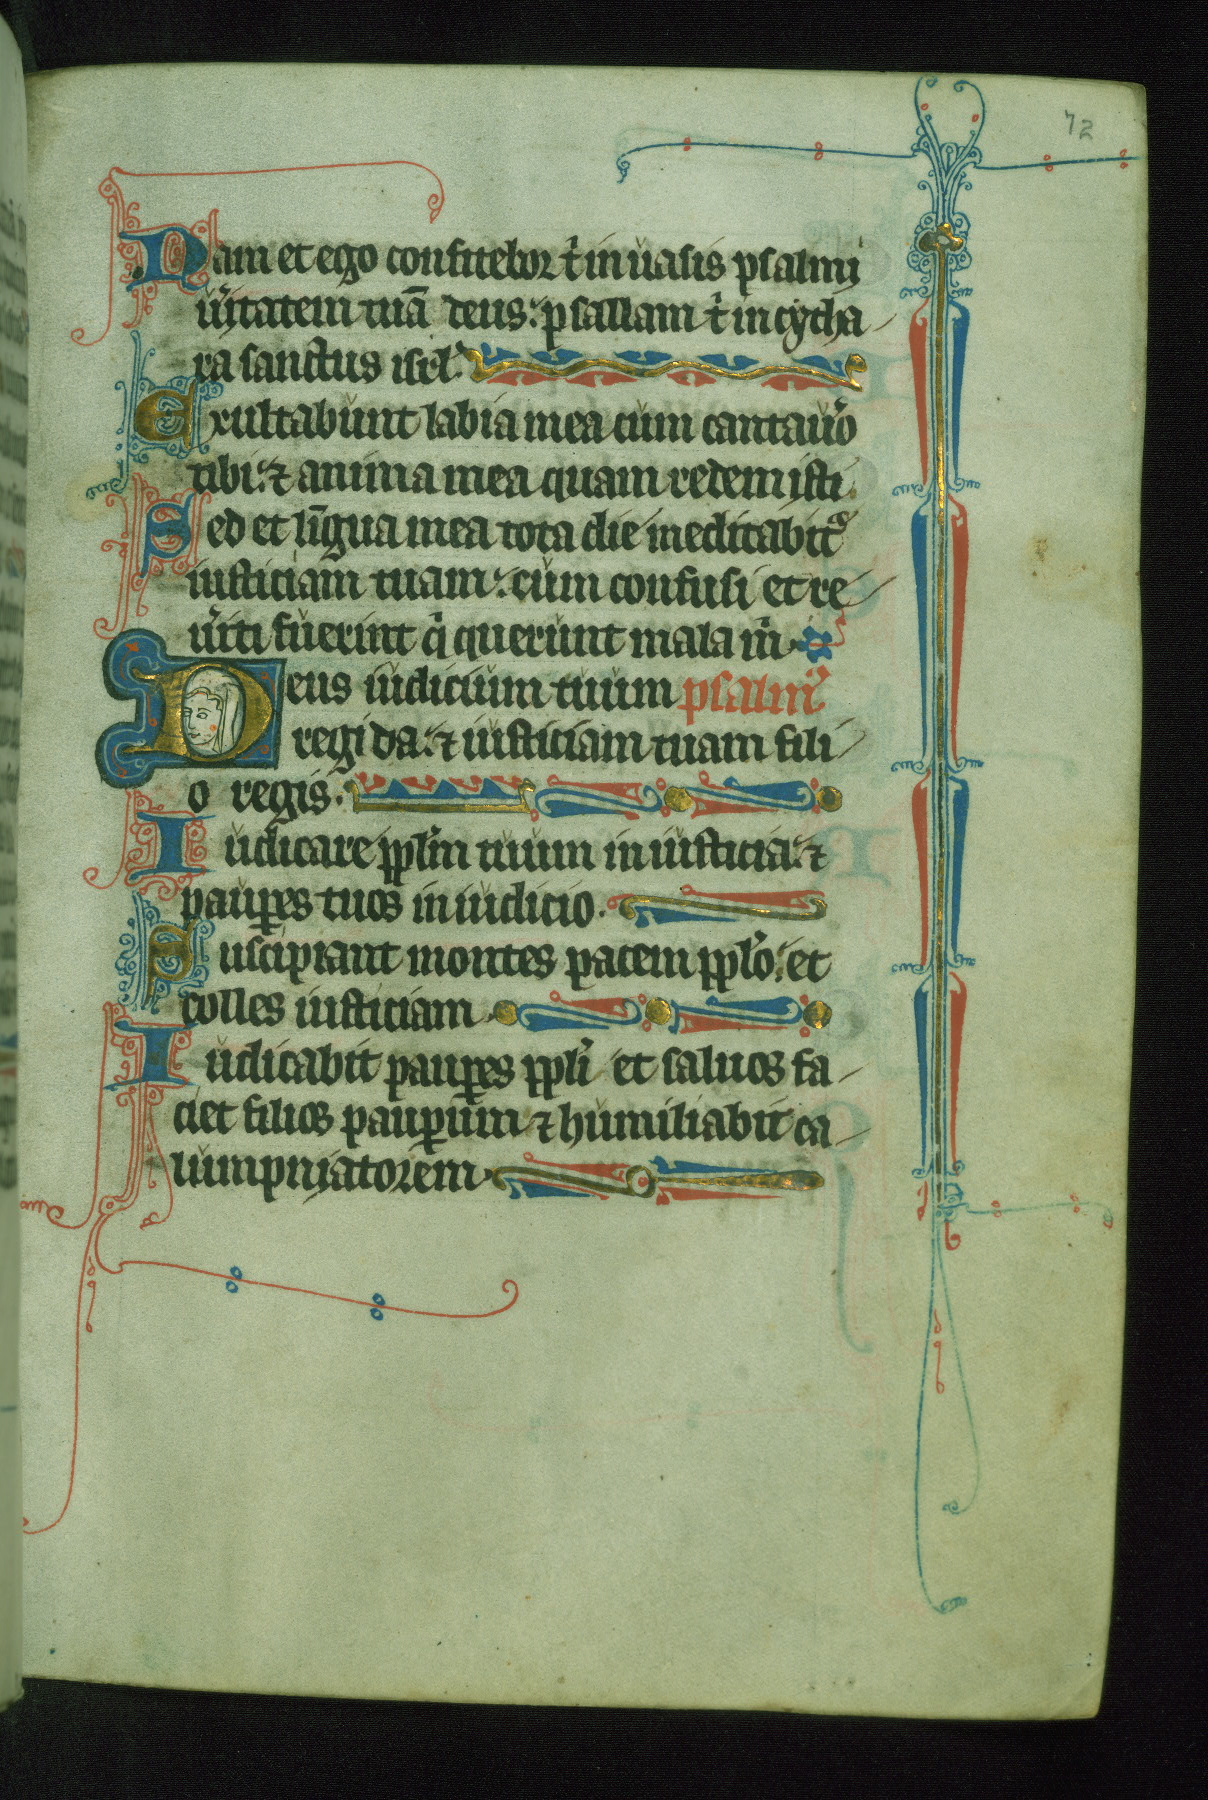 72
Nam et ego confitebor t̉ in uasis psalmi
ũitatem tuā deus: psallam t̉ in cytha
ra sanctus isrl̓.
Exultabunt labia mea cum cantaũo
tibi: ⁊ anima mea quam redemisti.
Sed et lingua mea tota die meditabit᷑
iusticiam tuam: cum confusi et re
ũiti fuerint q̉ querunt mala m̉
Deus iudicium tuum psalm̉
regi da: ⁊ iusticiam tuam fili
o regis:
Iudicare ppl̓m tuum in iusticia: ⁊
paup̱es tuos in iudicio.
Suscipiant montes pacem ppl̓o: et
colles iusticiam
Iudicabit paup̱es ppl̓i et saluos fa
ciet filios paup̱um ⁊ humiliabit ca
lumpniatorem